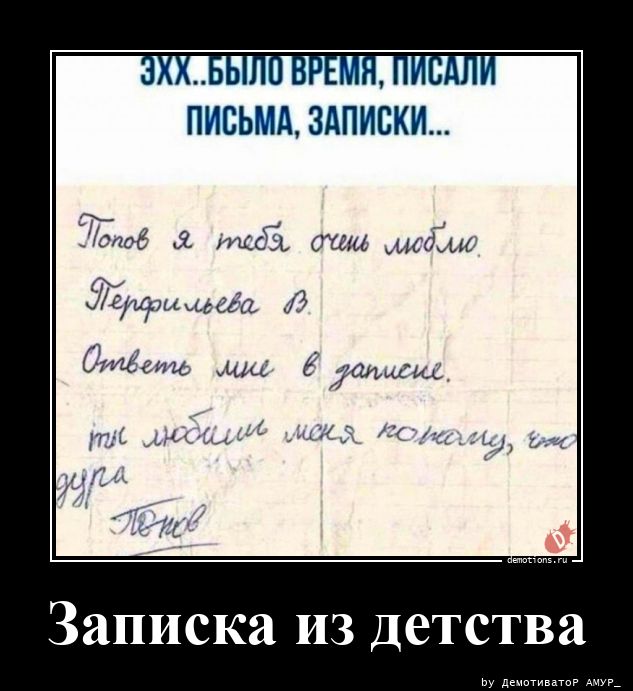 ЭХХ..БЫЛО ВРЕМЯ, ПИСАЛИ
ПИСЬМА, ЗАПИСКИ...
Попов я тебя очень люблю.
Перфильева В.
Ответь мне в записке.
ты любишь меня потому, что
дура
Попов
demotions.ru
Записка из детства
by ДемотиватоР АМУР_